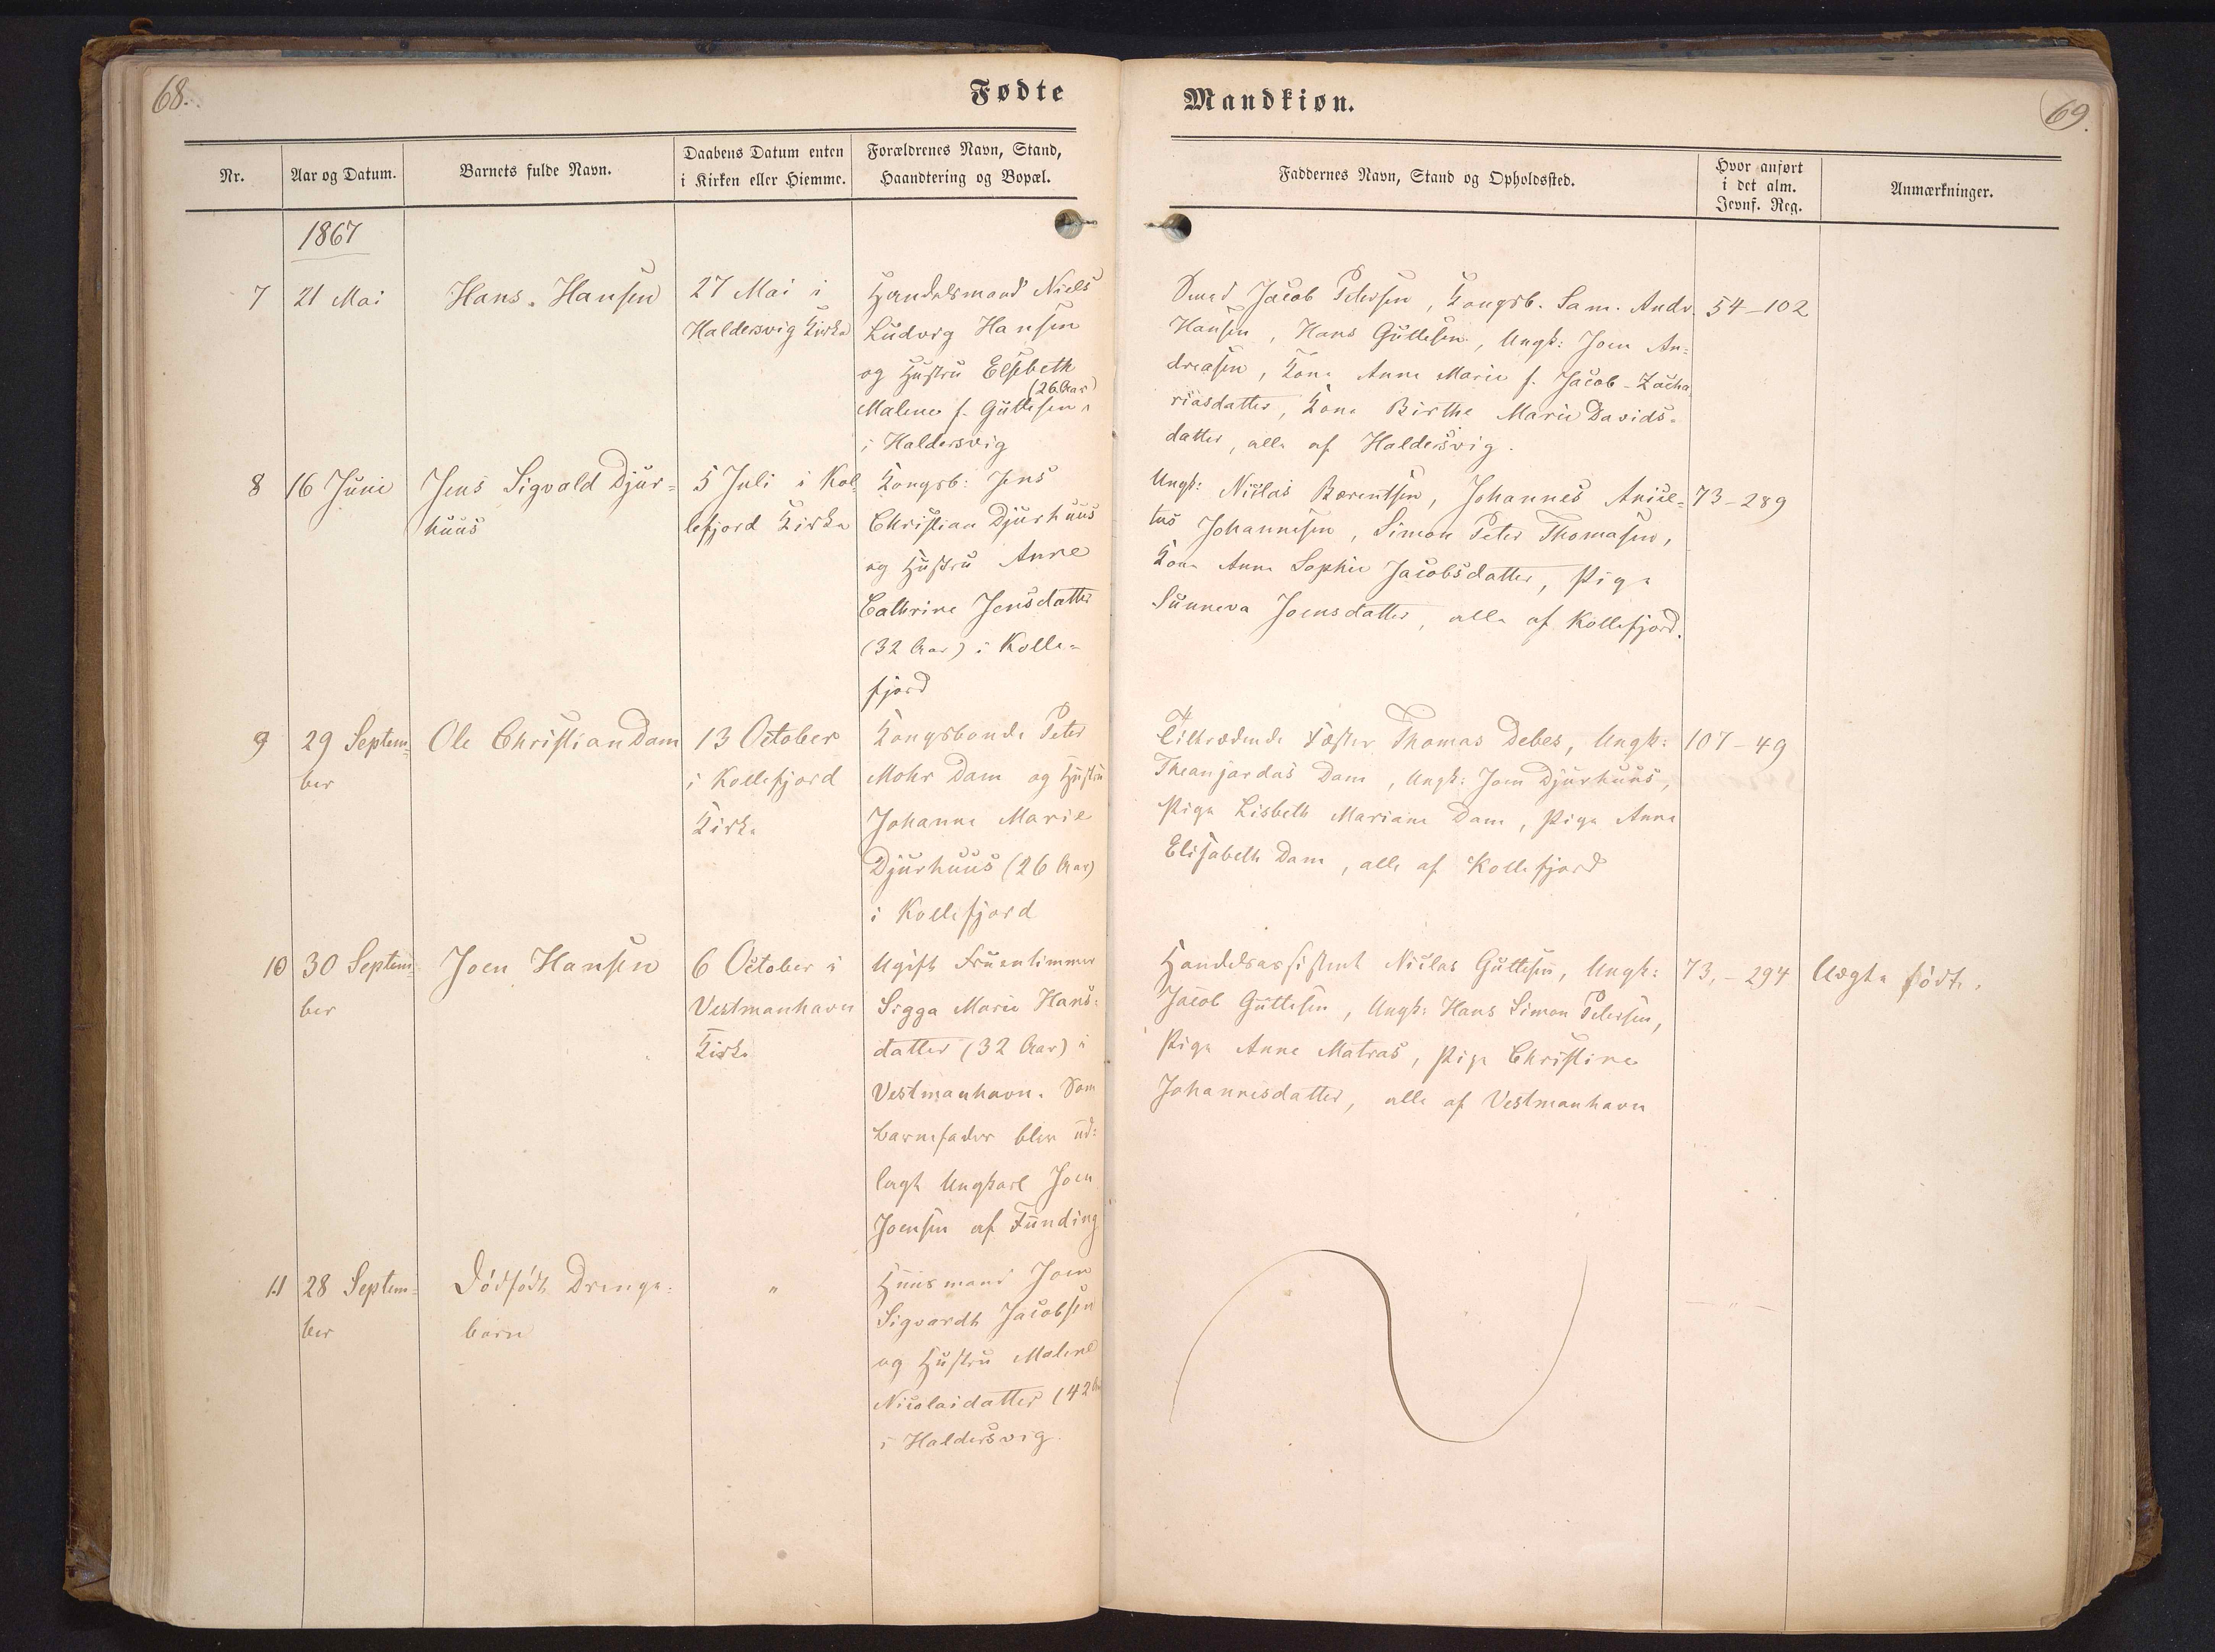 68.
Fødte
Nr.
Aar og Datum.
Barnets fulde Navn.
Daabens Datum enten
i Kirken eller Hiemme.
Forældrenes Navn, Stand,
Haandtering og Bopæl.
1867
7
21 Mai
Hans Hansen
27 Mai i
Haldersvig Kirke
Handelsmand Niels
Ludvig Hansen
og Hustru Elsebeth
(26 Aar)
Malene f. Guttesen
i Haldersvig
8
16 Juni
Jens Sigvald Djur=
huus
5 Juli i Kol
lefjord Kirke
Kongsb: Jens
Christian Djurhuus
og Hustru Anne
Cathrine Jensdatter
(32 Aar) i Kolle=
fjord
9
29 Septem=
ber
Ole Christian Dam
13 October
i Kollefjord
Kirke
Kongsbonde Peter
Mohr Dam og Hustru
Johanne Marie
Djurhuus (26 Aar)
i Kollefjord
10
30 Septem=
ber
Joen Hansen
6 October i
Vestmanhavn
Kirke
Ugift Fruentimmer
Sigga Marie Hans=
datter (32 Aar) i
Vestmanhavn. Som
Barnefader blev ud=
lagt Ungkarl Joen
Joensen af Funding
11
28 Septem=
ber
Dødfødt Drenge=
barn
"
Huusmand Joen
Sigvardt Jacobsen
og Hustru Malene
Nicolaidatter (42 Aar
i Haldersvig.
Mandkiøn.
69.
Faddernes Navn, Stand og Opholdssted.
Hvor anført
i det alm.
Jevnf. Reg.
Anmærkninger.
Smed Jacob Petersen, Kongsb. Sam. Andr.
Hansen, Hans Guttesen, Ungk: Joen An=
dreasen, Kone Anne Marie f. Jacob-Zacha
riasdatter, Kone Birthe Marie Davids=
datter, alle af Haldersvig.
54-102
Ungk: Niclas Barentsen, Johannes Anicе=
tus Johannesen, Simon Peter Thomasen,
Kone Anne Sophie Jacobsdatter, Pige
Sunneva Joensdatter, alle af Kollefjord.
73-289
Tiltrædende Fæster Thomas Debes, Ungk:
Theanjardas Dam, Ungk: Joen Djurhuus,
Pige Lisbeth Mariane Dam, Pige Anne
Elisabeth Dam, alle af Kollefjord
107-49
Handelsassistent Niclas Guttesen, Ungk:
Jacob Guttesen, Ungk: Hans Simon Petersen,
Pige Anne Matras, Pige Christine
Johannesdatter, alle af Vestmanhavn
73,-294
Uægte født.
— " —